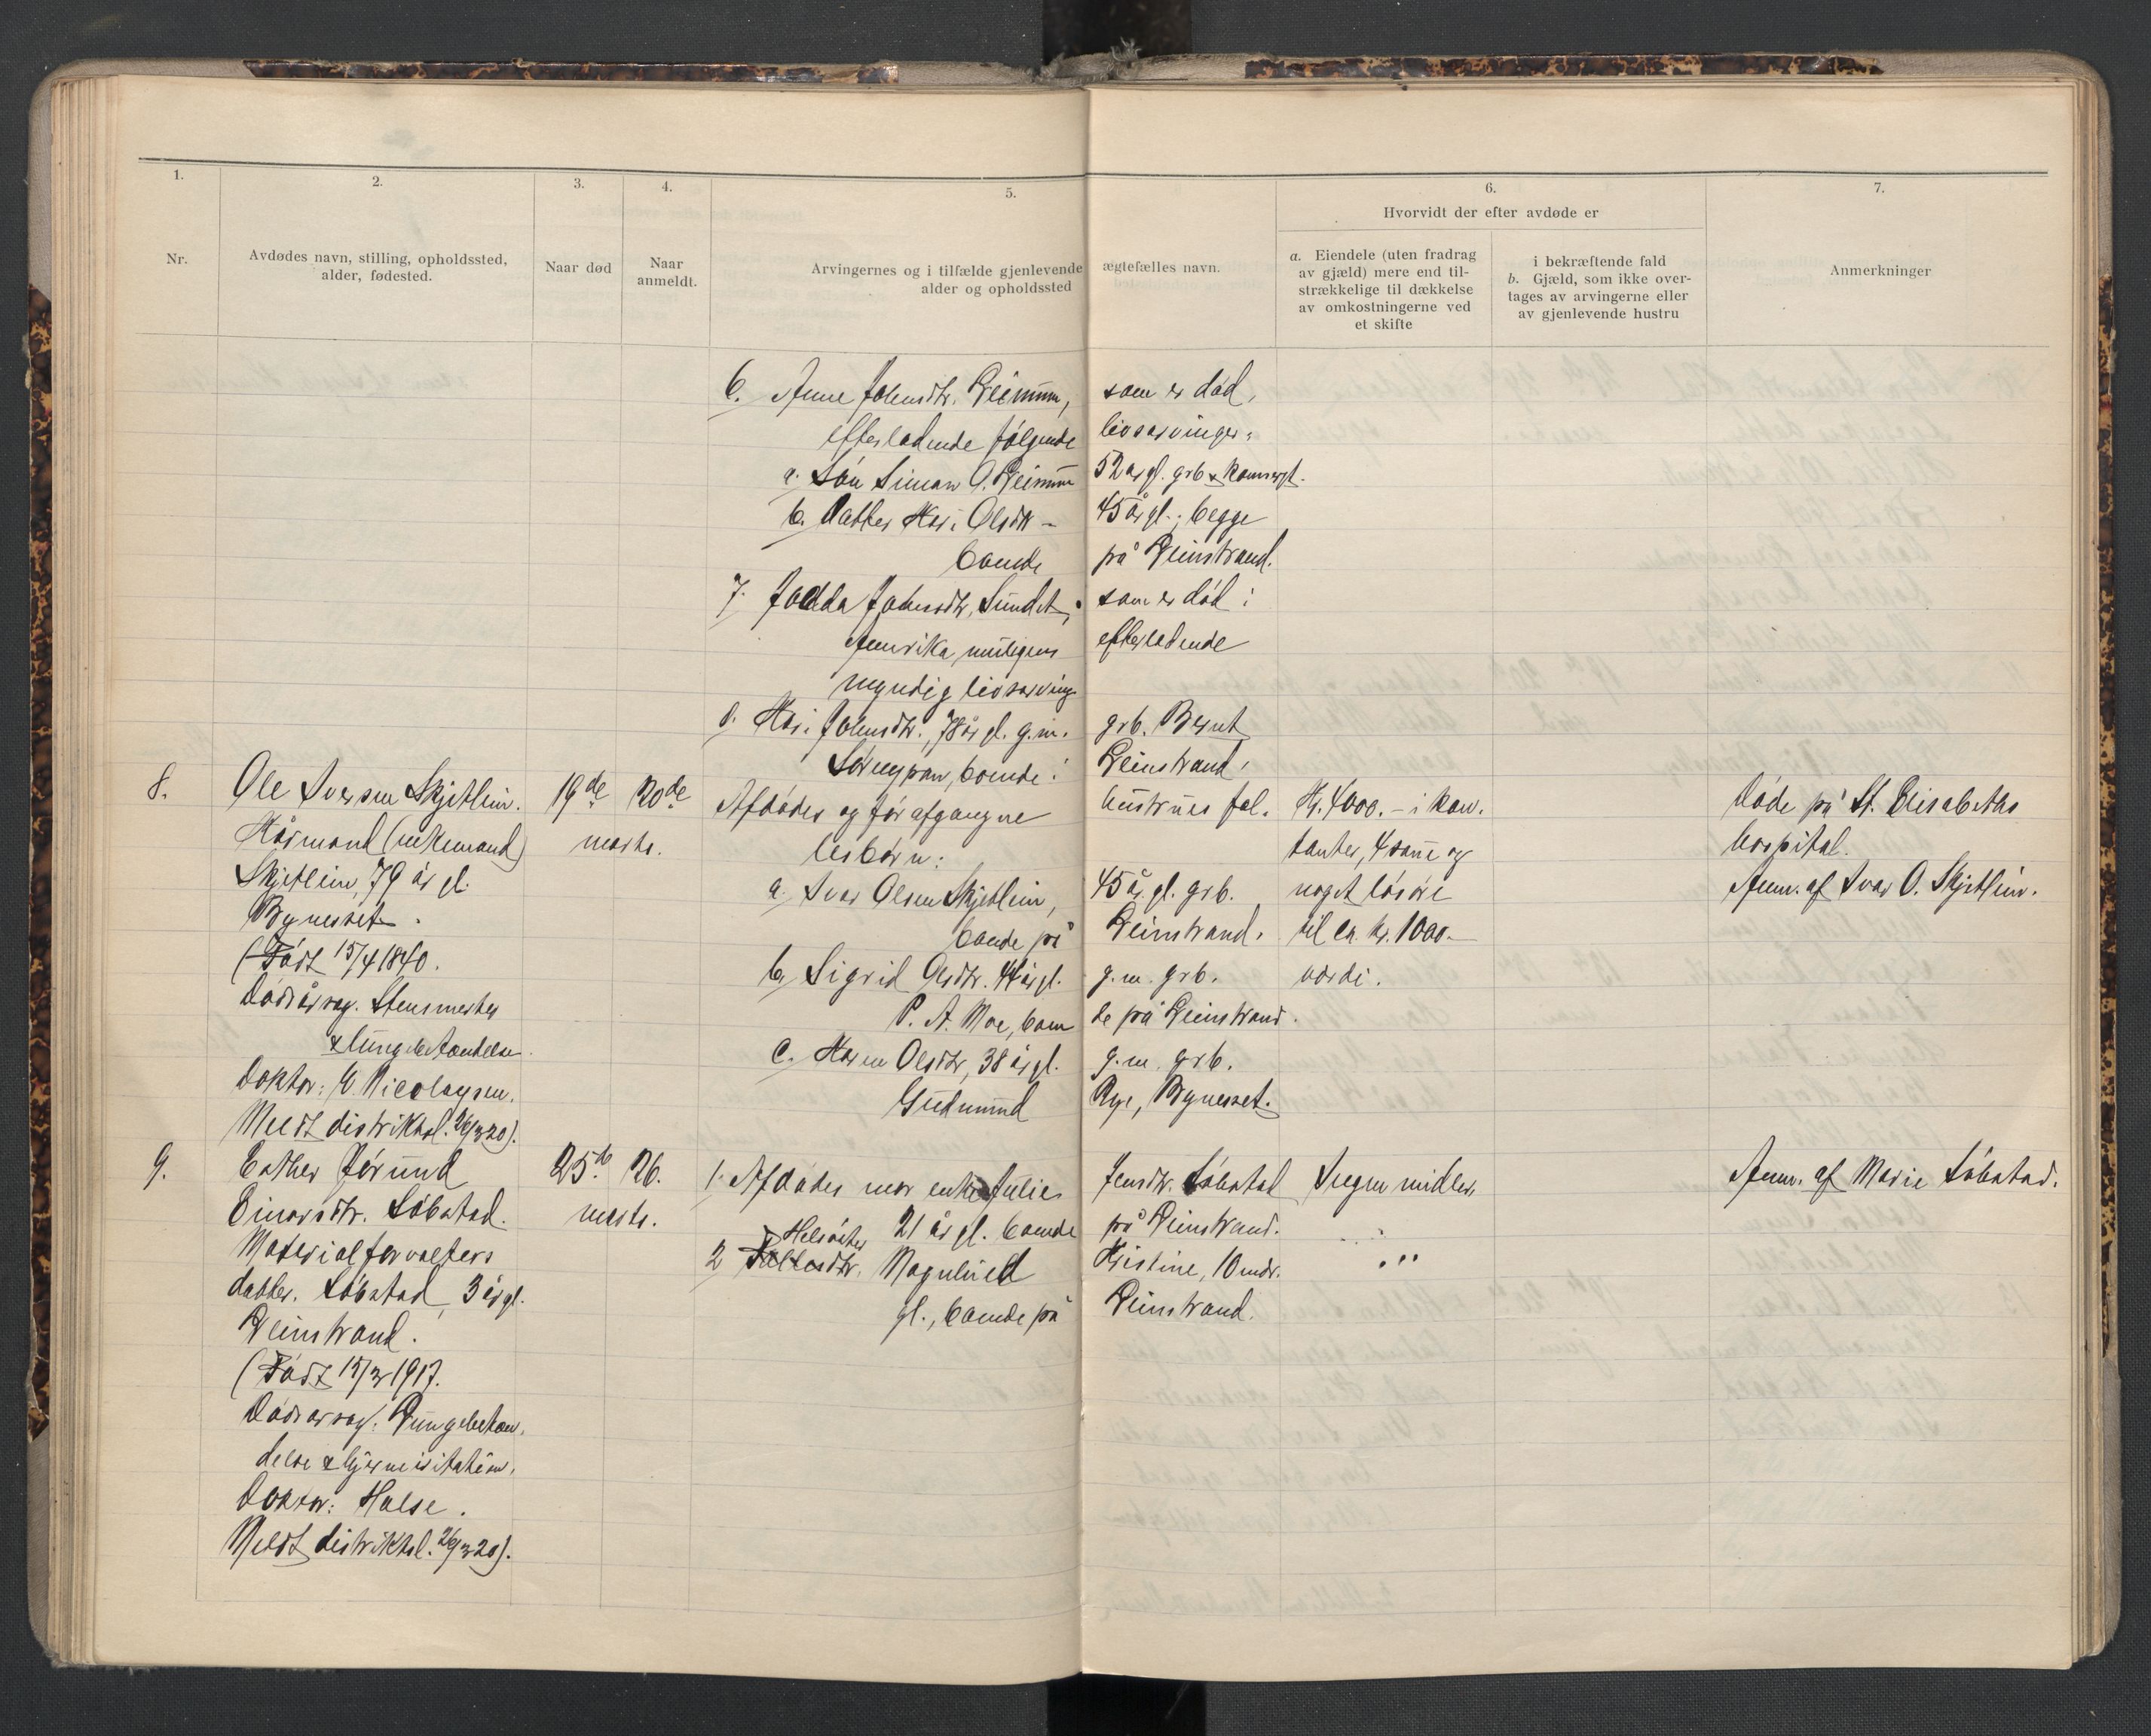 1.
2.
3.
4.
5.
6.
7.
Nr.
Avdødes navn, stilling, opholdssted,
alder, fødested.
Naar død
Naar
anmeldt.
Arvingernes og i tilfælde gjenlevende ægtefælles navn.
alder og opholdssted
Hvorvidt der efter avdøde er
a. Eiendele (uten fradrag
av gjæld) mere end til-
strækkelige til dækkelse
av omkostningerne ved
et skifte
i bekræftende fald
b. Gjæld, som ikke over-
tages av arvingerne eller
av gjenlevende hustru
Anmerkninger
6. Anne Johnsdtr. som er død,
efterladende følgende livsarvinger:
a. Søn Simon O. 52 år gl. grb &
b. Datter Kari Olsdtr 45 år gl., begge
boende på Leinstrand.
7. Johnsdtr. Sundet, som er død i
Amerika muligens efterladende
myndig livsarving
8. Kari Johnsdtr., 78 år gl. g.m. grb. Bernt
boende i Leinstrand.
8.
Ole Iversen Skjetlein.
Kårmand (enkemand)
Skjetlein, 79 år gl.
Bynesset.
(Født 15/4 1840.
Dødsårsag. Stensmerter
& lungebetændelse.
Doktor: Nicolaysen.
Meldt distriktsl. 26/3 20).
19de
marts.
20de
Afdødes og før afgangne hustrues fæl-
lesbørn:
a. Ivar Olsen Skjetlein, 45 år gl. grb.
boende på Leinstrand.
b. Sigrid Olsdtr. 44 år gl. g.m. grb.
P. A. Moe, boen de på Leinstrand.
c. Karen Olsdtr, 38 år gl. g.m. grb.
Gudmund Rye, Bynesset.
Kr. 4000.- i kon-
tanter, 4000 og
noget løsøre
til ca. kr. 1000.-
værdi.
Døde på St. Elisabeths
hospital.
Anm. af Ivar O. Skjetlein.
9.
Esther Jørund
Einarsdtr. Løbstad.
Materialforvalters
datter. Løbstad, 3 år gl.
Leinstrand.
(Født 15/3 1917.
Dødsårsag: Lungebetæn-
delse & hjerneirritation.
Doktor: Halse.
Meldt distriktsl. 26/3 20).
25de
marts.
26.
1. Afdødes mor enke Julie Jensdtr. Løbstad
21 år gl. boende på Leinstrand.
Helsøster
2 Magnhild Kristine, 10 mdr.
gl., boende på Leinstrand.
Ingen midler.
"
Anm. af Marie Løbstad.